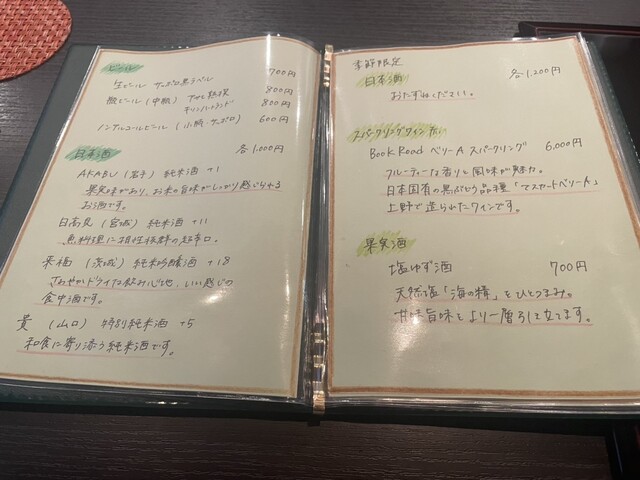 ビール
生ビール サッポロ黒ラベル 700円
瓶ビール (中瓶) アサヒ熟撰 800円
キリンハートランド 800円
ノンアルコールビール (小瓶・サッポロ) 600円
日本酒 各1,000円
AKABU (岩手) 純米酒 +1
果実味があり、お米の旨味がしっかり感じられる
お酒です。
日高見 (宮城) 純米酒 +11
魚料理に相性抜群の超辛口。
来福 (茨城) 純米吟醸酒 +18
さわやかドライな飲み心地、いい感じの
食中酒です。
貴 (山口) 特別純米酒 +5
和食に寄り添う純米酒です。
季節限定
日本酒 各1,200円
おたずねください。
スパークリングワイン
Book Road ベリーA スパークリング 6,000円
フルーティーな香りと風味が魅力。
日本固有の黒ぶどう品種「マスカットベリーA」
上野で造られたワインです。
果実酒
塩ゆず酒 700円
天然塩「海の精」をひとつまみ。
甘味旨味をより一層引き立てます。